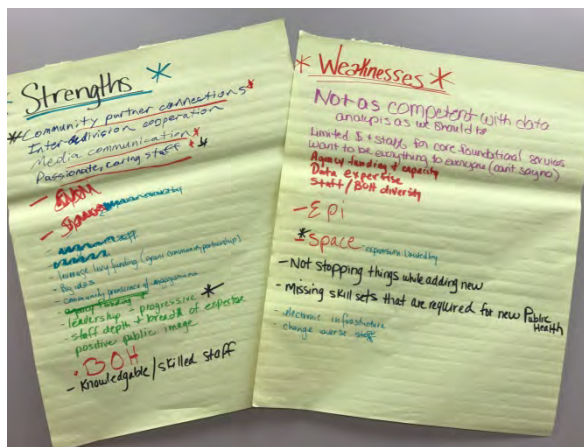 * Strengths *
* Community partner connections *
Inter-division cooperation
Media communication *
Passionate, caring staff *
-
- Space
staff
- leverage levy funding (
- Big ideas
- community
- agency funding
- leadership - progressive *
- staff depth + breadth of expertise
positive public image
· BOH
- Knowledgable/skilled staff
* Weaknesses *
Not as competent with data
analysis as we should be
Limited $ + staff for core foundational services
want to be everything to everyone (can't say no)
Agency funding + capacity
Data expertise
Staff/BOH diversity
- Epi
* - Space - expansion limited by
- Not stopping things while adding new
- Missing skill sets that are required for new Public
Health
- electronic infrastructure
- change averse staff